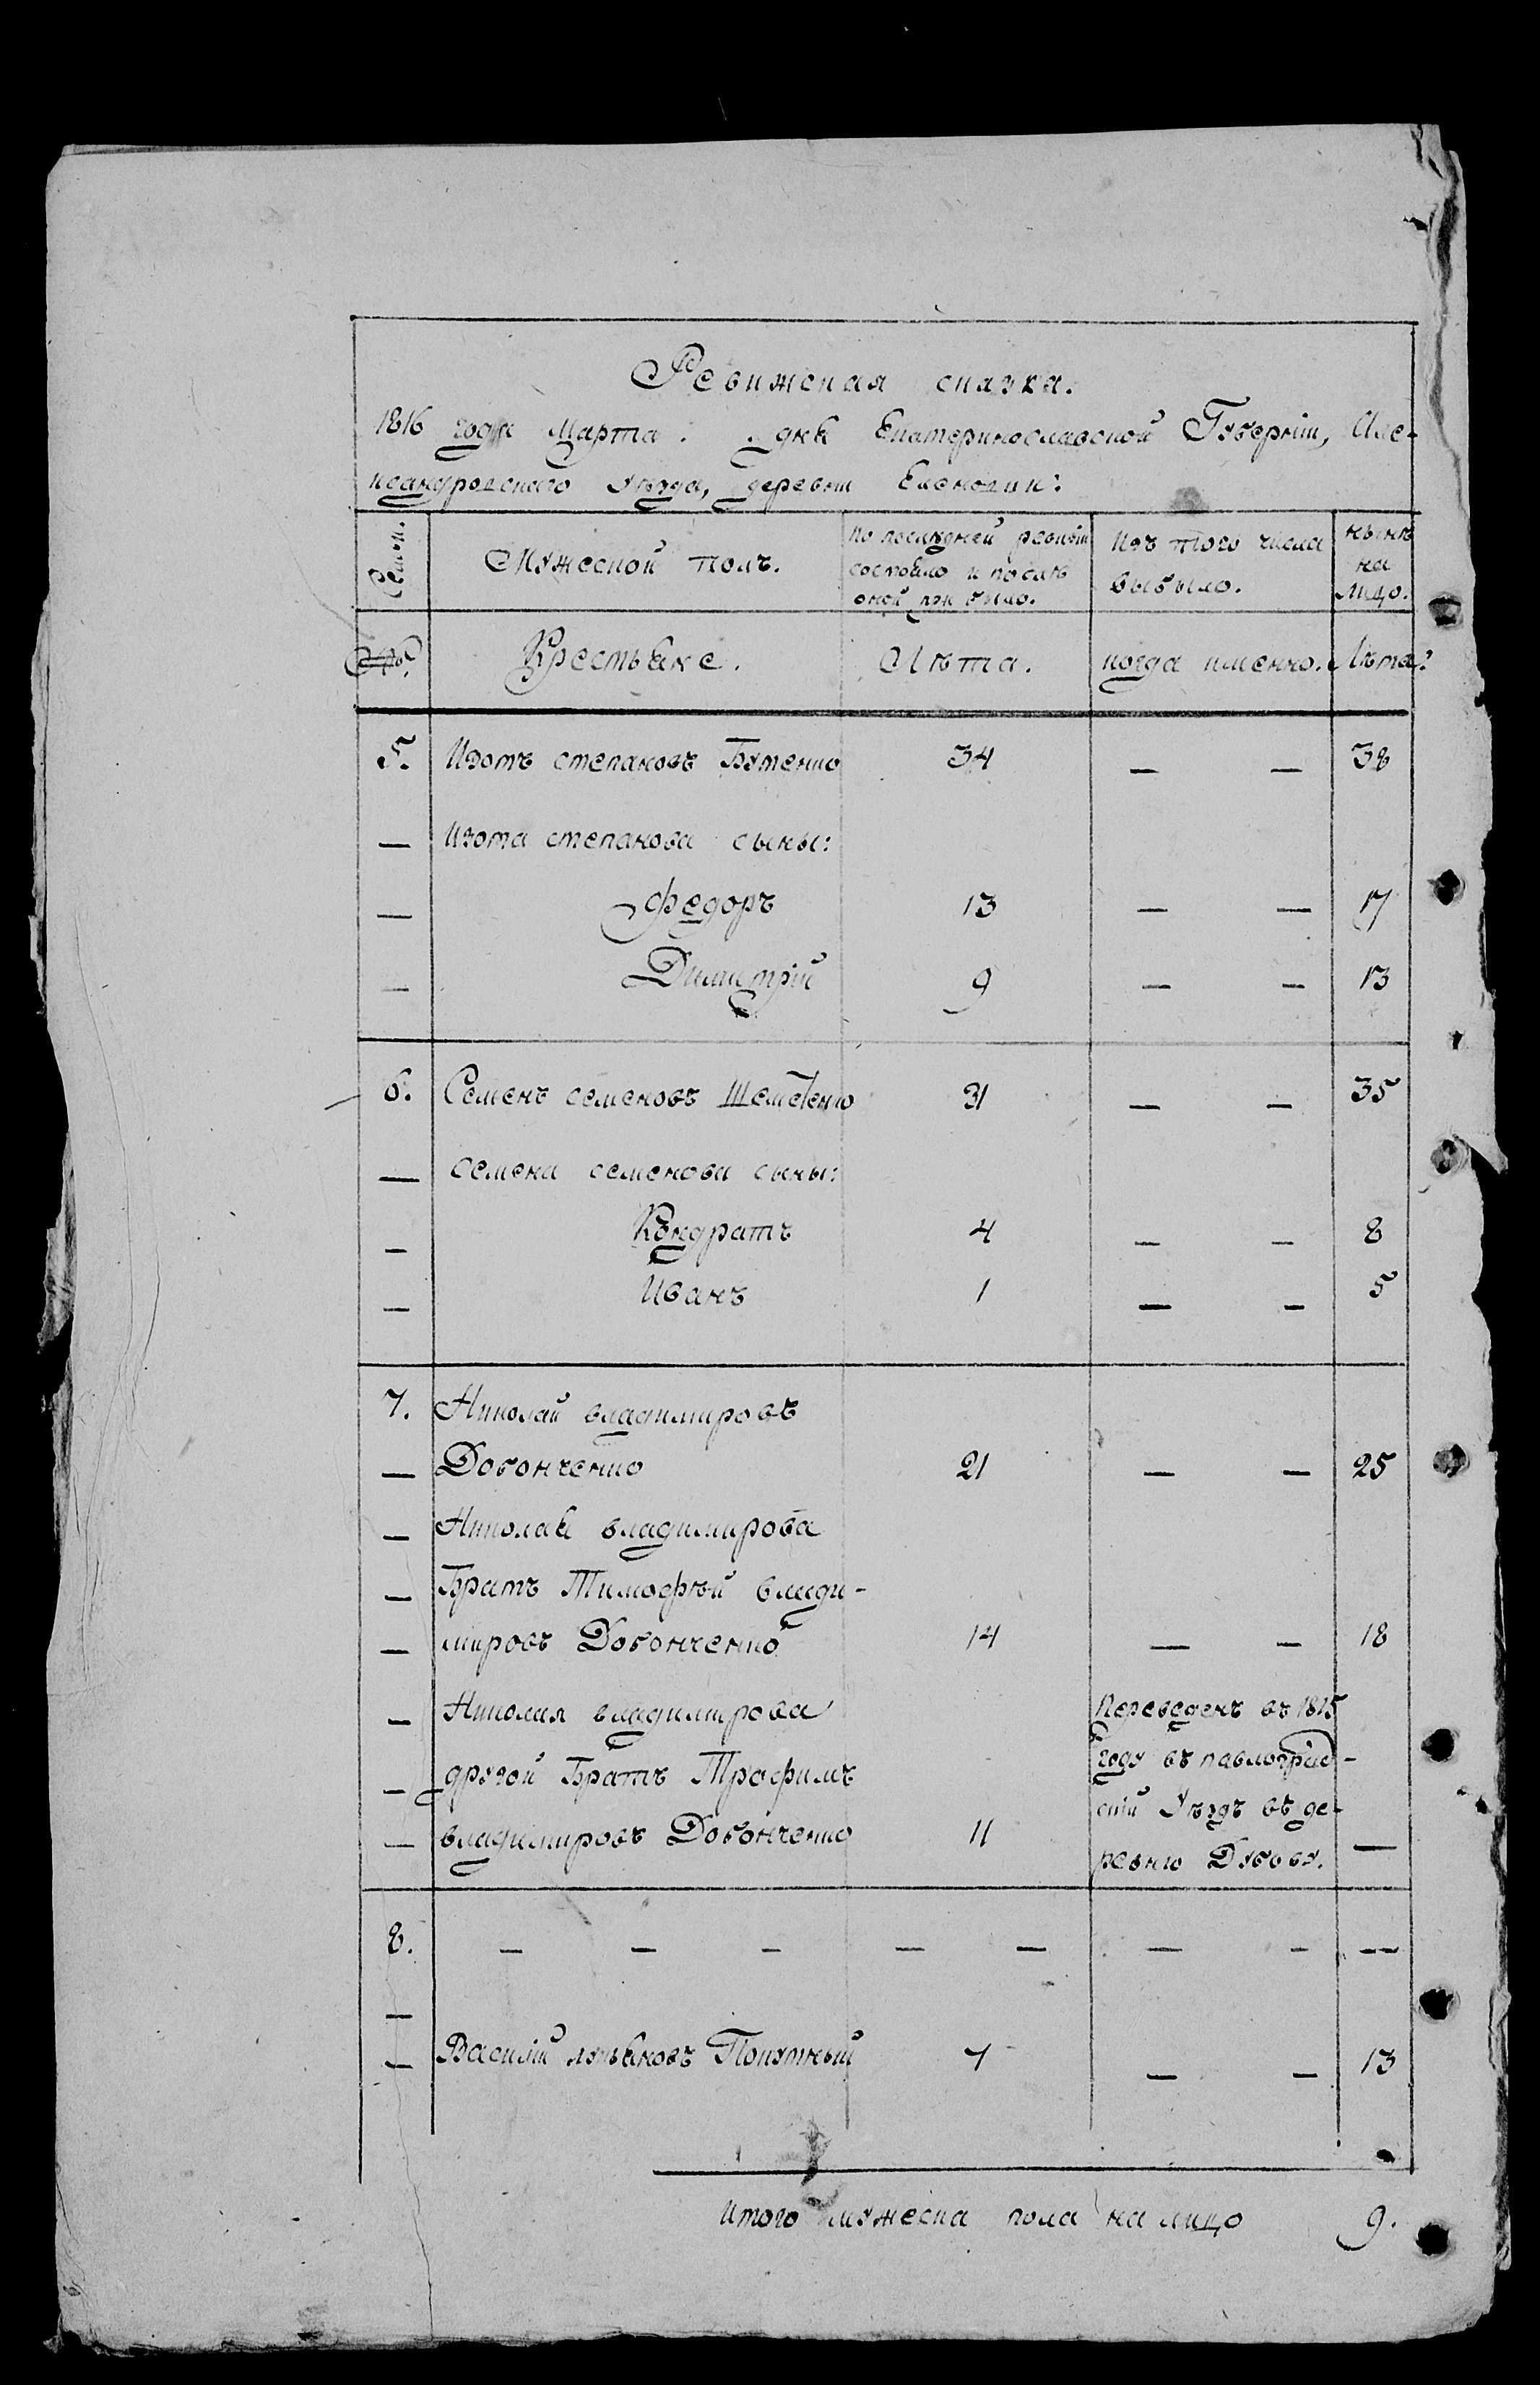 Ревижская сказка.
1816 года Марта: дня Екатеринославской Губерніи, Алек-
сандровскаго уѣзда, деревни Еленовки:
Семьи. Мужеской полъ. По последней ревизіи Изъ того числа нынѣ
состояло и послѣ выбыло. на
оной при было. лицо.
№. Крестьяне. Лѣта. когда именно. Лѣта:
5. Изотъ степановъ Бутенко 34 — — 38
— Изота степанова сыны:
— федоръ 13 — — 17
— Димитрій 9 — — 13
6. Семенъ семеновъ 31 — — 35
— семена семенова сыны:
— Кондратъ 4 — — 8
— Иванъ 1 — — 5
7. Николай владимировъ
— Довонченко 21 — — 25
— Николая владимирова
— Братъ Тимофѣй влади-
— мировъ Довонченко 14 — — 18
— Николая владимирова Переведенъ въ 1815
— другой Братъ Трофимъ году въ павлоград-
скій Уѣздъ въ де-
— владимировъ Довонченко 11 ревню Дубову. —
8. — — — — — — — —
—
— Василій лукьяновъ 7 — — 13
Итого мужеска пола на лицо 9.